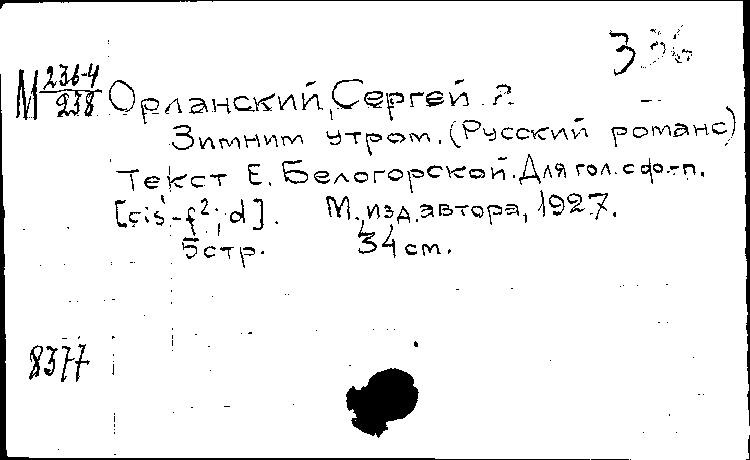 336
М 236-4/238 Орланский, Сергей Р.
Зимним утром. (Русский романс)
Текст Е. Белогорской. Для гол. с фо.-п.
[cis'-f²; d]. М., изд. автора, 1927.
5 стр. 34 см.
8377